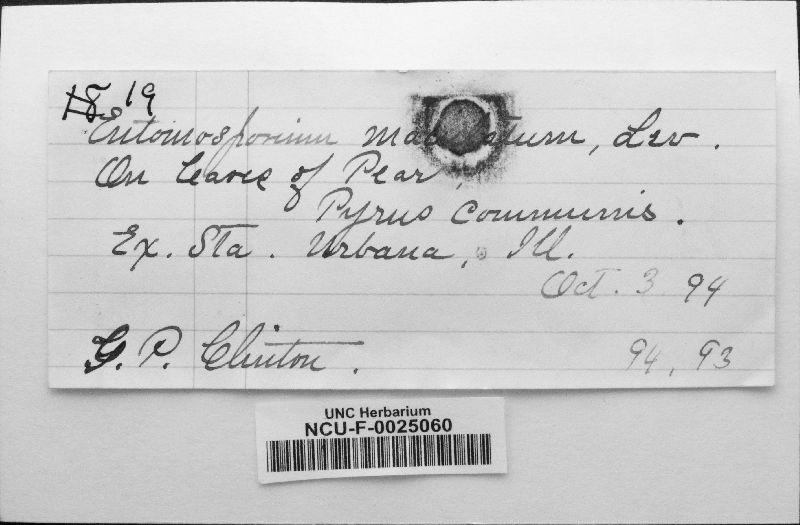 1819
Entomosporium maculatum, Lev.
On leaves of Pear,
Pyrus communis.
Ex. Sta. Urbana, Ill.
Oct. 3 94
G. P. Clinton. 94, 93
UNC Herbarium
NCU-F-0025060